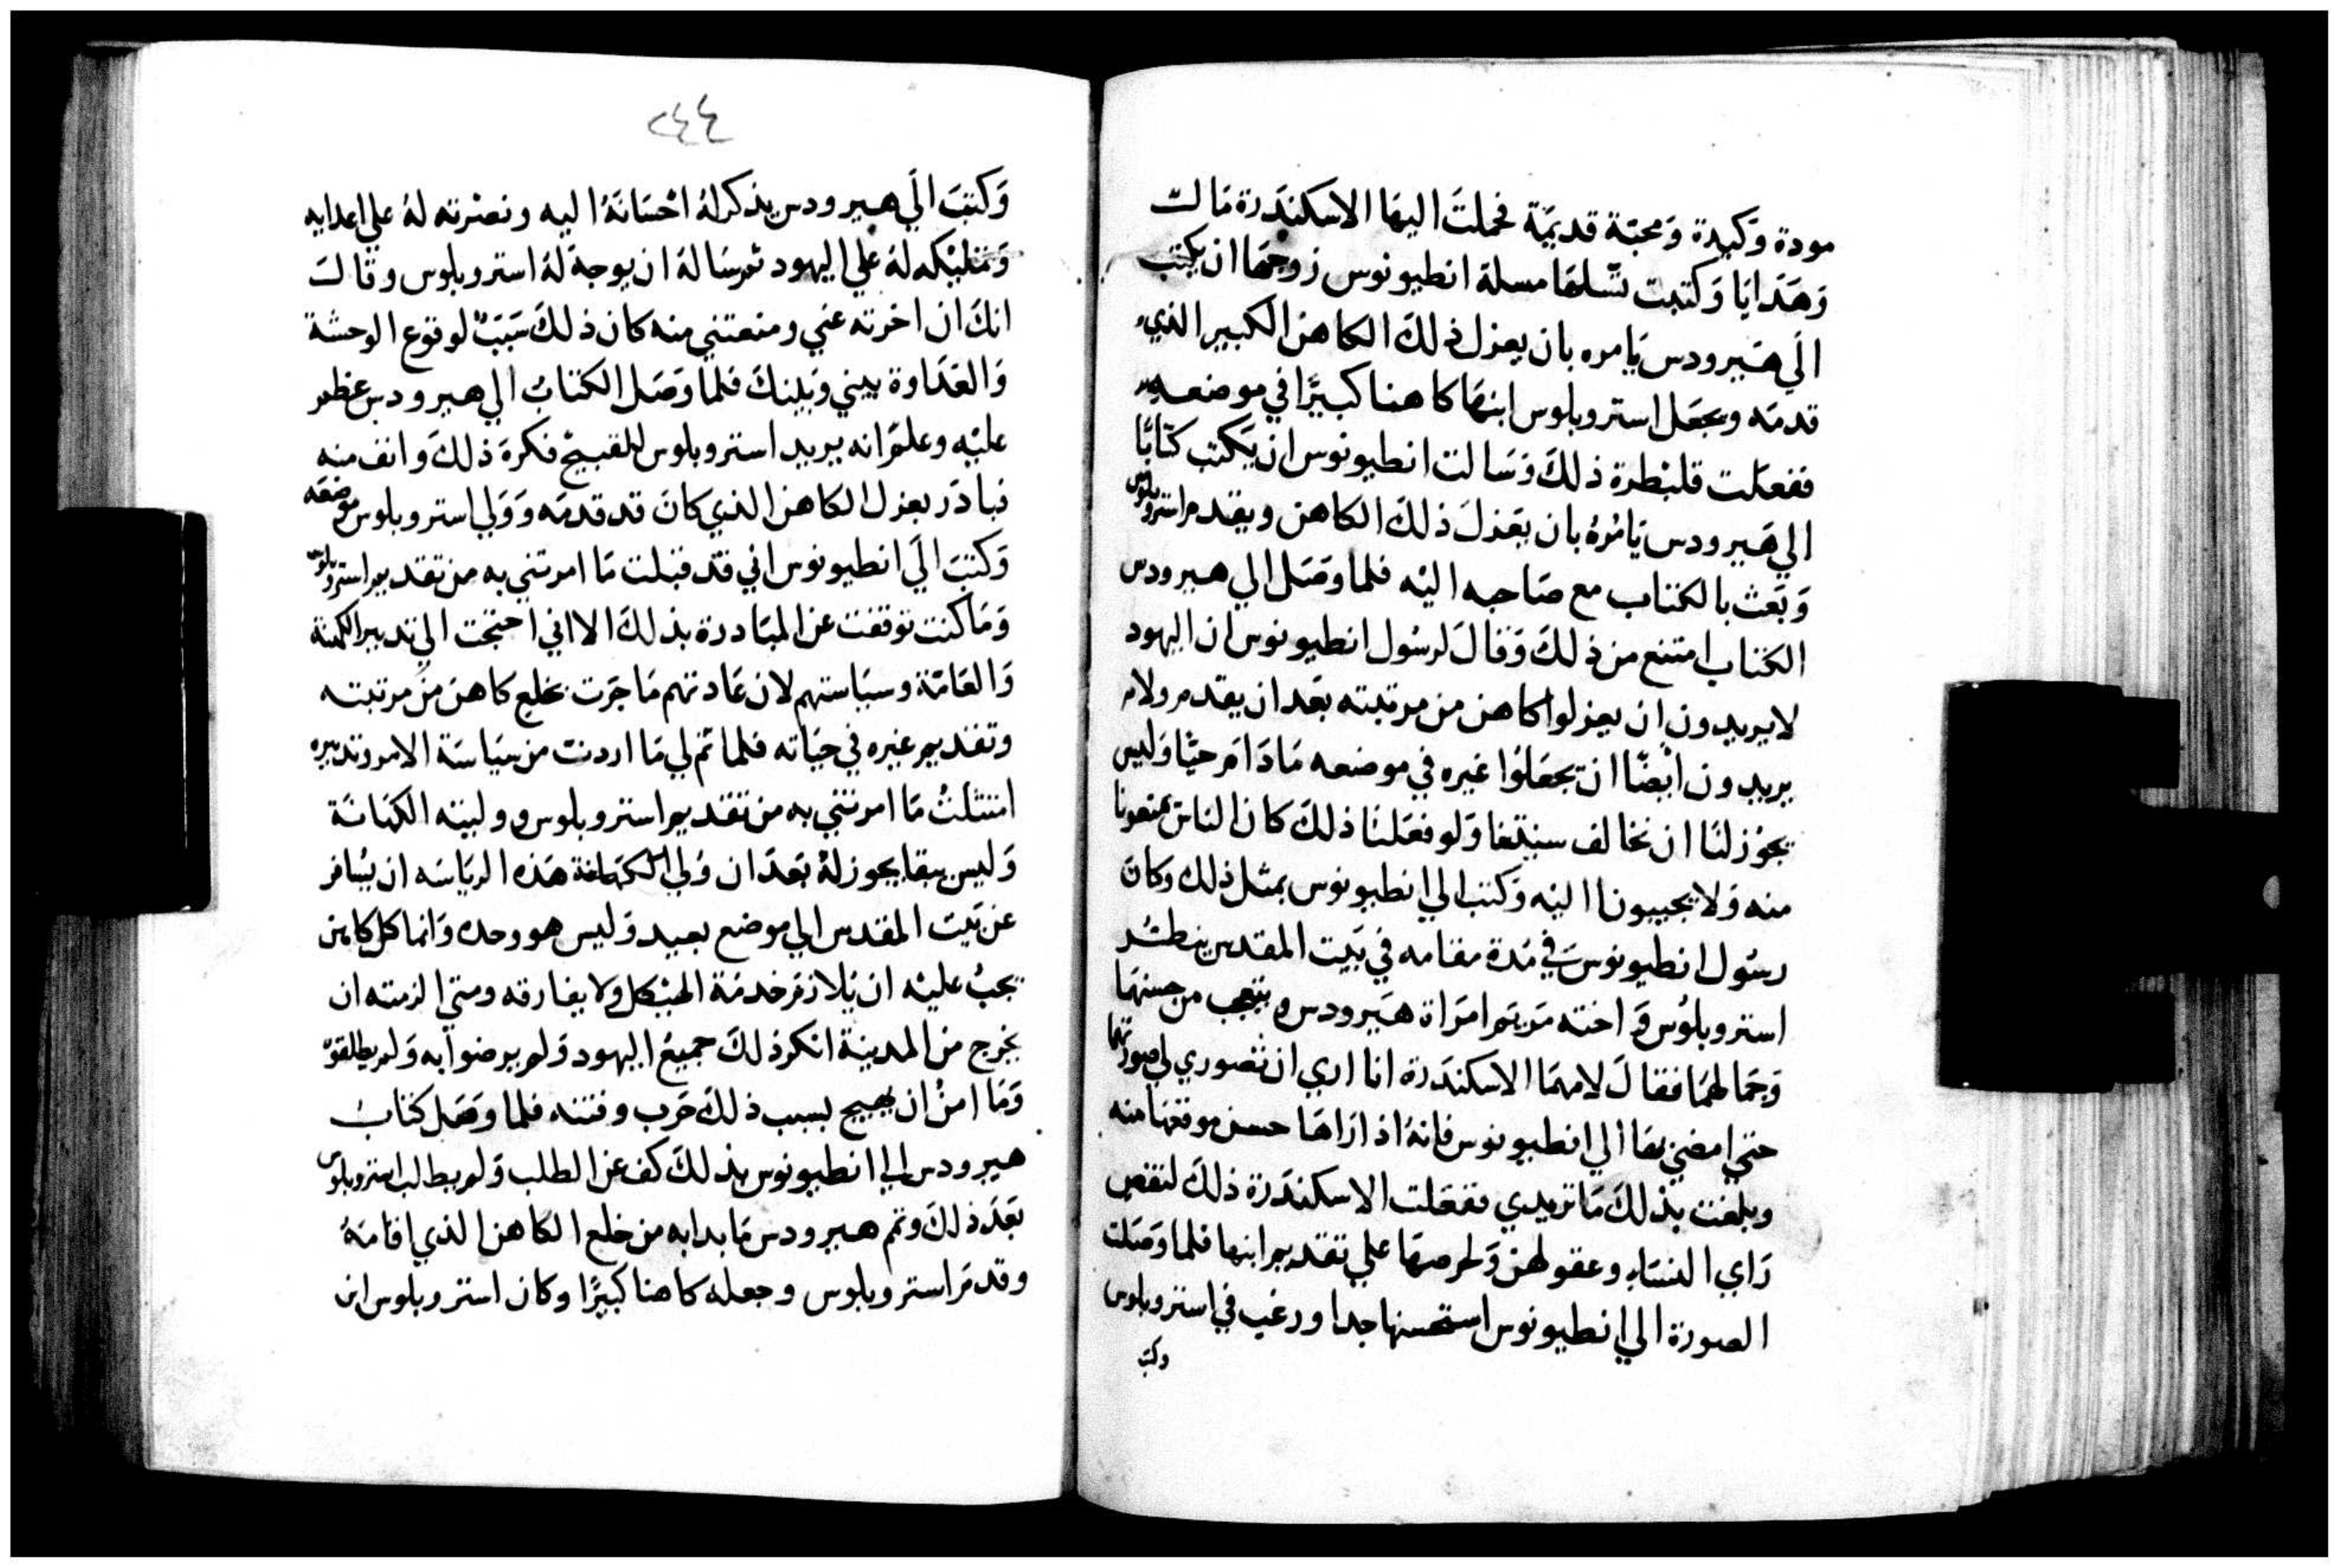 مودة وكيدة ومحبة قديمة فحملت اليها الاسكندرة مالت
وهدايا وكتبت تسلها مسلة انطيونوس زوجها ان يكتب
الي هيرودس يامره بان يعزل ذلك الكاهن الكبير الذي
قدمه ويجعل استروبلوس ابنها كاهنا كبيرًا في موضعه
ففعلت قلبطرة ذلك وسالت انطيونوس ان يكتب كتابًا
الي هيرودس يامره بان يعزل ذلك الكاهن ويقدم استروبلوس
وبعث بالكتاب مع صاحبه اليه فلما وصل الي هيرودس
الكتاب امتنع من ذلك وقال لرسول انطيونوس ان اليهود
لا يريدون ان يعزلوا كاهن من مرتبته بعد ان يقدم ولا
يريدون ايضًا ان يجعلوا غيره في موضعه مادام حيًا وليس
يجوز لنا ان نخالف سنتنا ولو فعلنا ذلك كان الناس يمنعونا
منه ولا يجيبونا اليه وكتب الي انطيونوس بمثل ذلك وكان
رسول انطيونوس في مدة مقامه في بيت المقدس ينظر
استروبلوس واخته مريم امراة هيرودس ويتعجب من حسنهما
وجمالهما فقال لامهما الاسكندرة انا اري ان تصوري لي صورتهما
حتي امضي بها الي انطيونوس فانه اذا راها حسن موقعها منه
وبلغت بذلك ما تريدي ففعلت الاسكندرة ذلك لنقص
راي النساء وعقولهن ولحرصها علي تقديم ابنها فلما وصلت
الصورة الي انطيونوس استحسنها جدا ورغب في استروبلوس
وكتب
٢٤٤
وكتب الي هيرودس يذكر له احسانه اليه ونصرته له علي اعدايه
وتمليكه له علي اليهود ثم ساله ان يوجه له استروبلوس وقال
انك ان اخرته عني ومنعتني منه كان ذلك سبب لوقوع الوحشة
والعداوة بيني وبينك فلما وصل الكتاب الي هيرودس عظم
عليه وعلم انه يريد استروبلوس للقبيح فكره ذلك وانف منه
فبادر بعزل الكاهن الذي كان قد قدمه وولي استروبلوس موضعه
وكتب الي انطيونوس اني قد قبلت ما امرتني به من تقديم استروبلوس
وما كنت توقفت عن المبادرة بذلك الا اني احتجت الي تدبير الكهنة
والعامة وسياستهم لان عادتهم ما جرت بخلع كاهن من مرتبته
وتقديم غيره في حياته فلما تم لي ما اردت من سياسة الامر وتدبيره
امتثلت ما امرتني به من تقديم استروبلوس ووليته الكهانة
وليس بقا يجوز له بعد ان ولي الكهانة هذه الرياسه ان يسافر
عن بيت المقدس الي موضع بعيد وليس هو وحده وانما كل كاهن
يجب عليه ان يلازم خدمة الهيكل ولا يفارقه ومتي الزمته ان
يخرج من المدينة انكر ذلك جميع اليهود ولم يرضوا به ولم يطلقوه
وما امن ان يهيج بسبب ذلك حرب وفتنه فلما وصل كتاب
هيرودس الي انطيونوس بذلك كف عن الطلب ولم يطالب استروبلوس
بعد ذلك وتم هيرودس ما بدا به من خلع الكاهن الذي اقامه
وقدم استروبلوس وجعله كاهنا كبيرًا وكان استروبلوس ابن